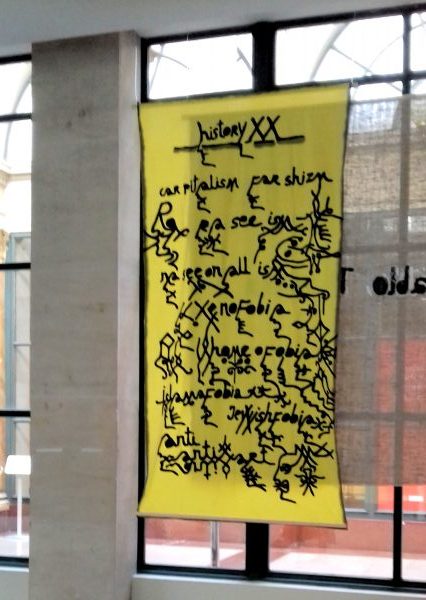 history XX
carpitalism Farshizm
Ra sea see ism
na see on all is
Xenofobia
homeofobia
islamafobia
Jewishfobia
anti
anti